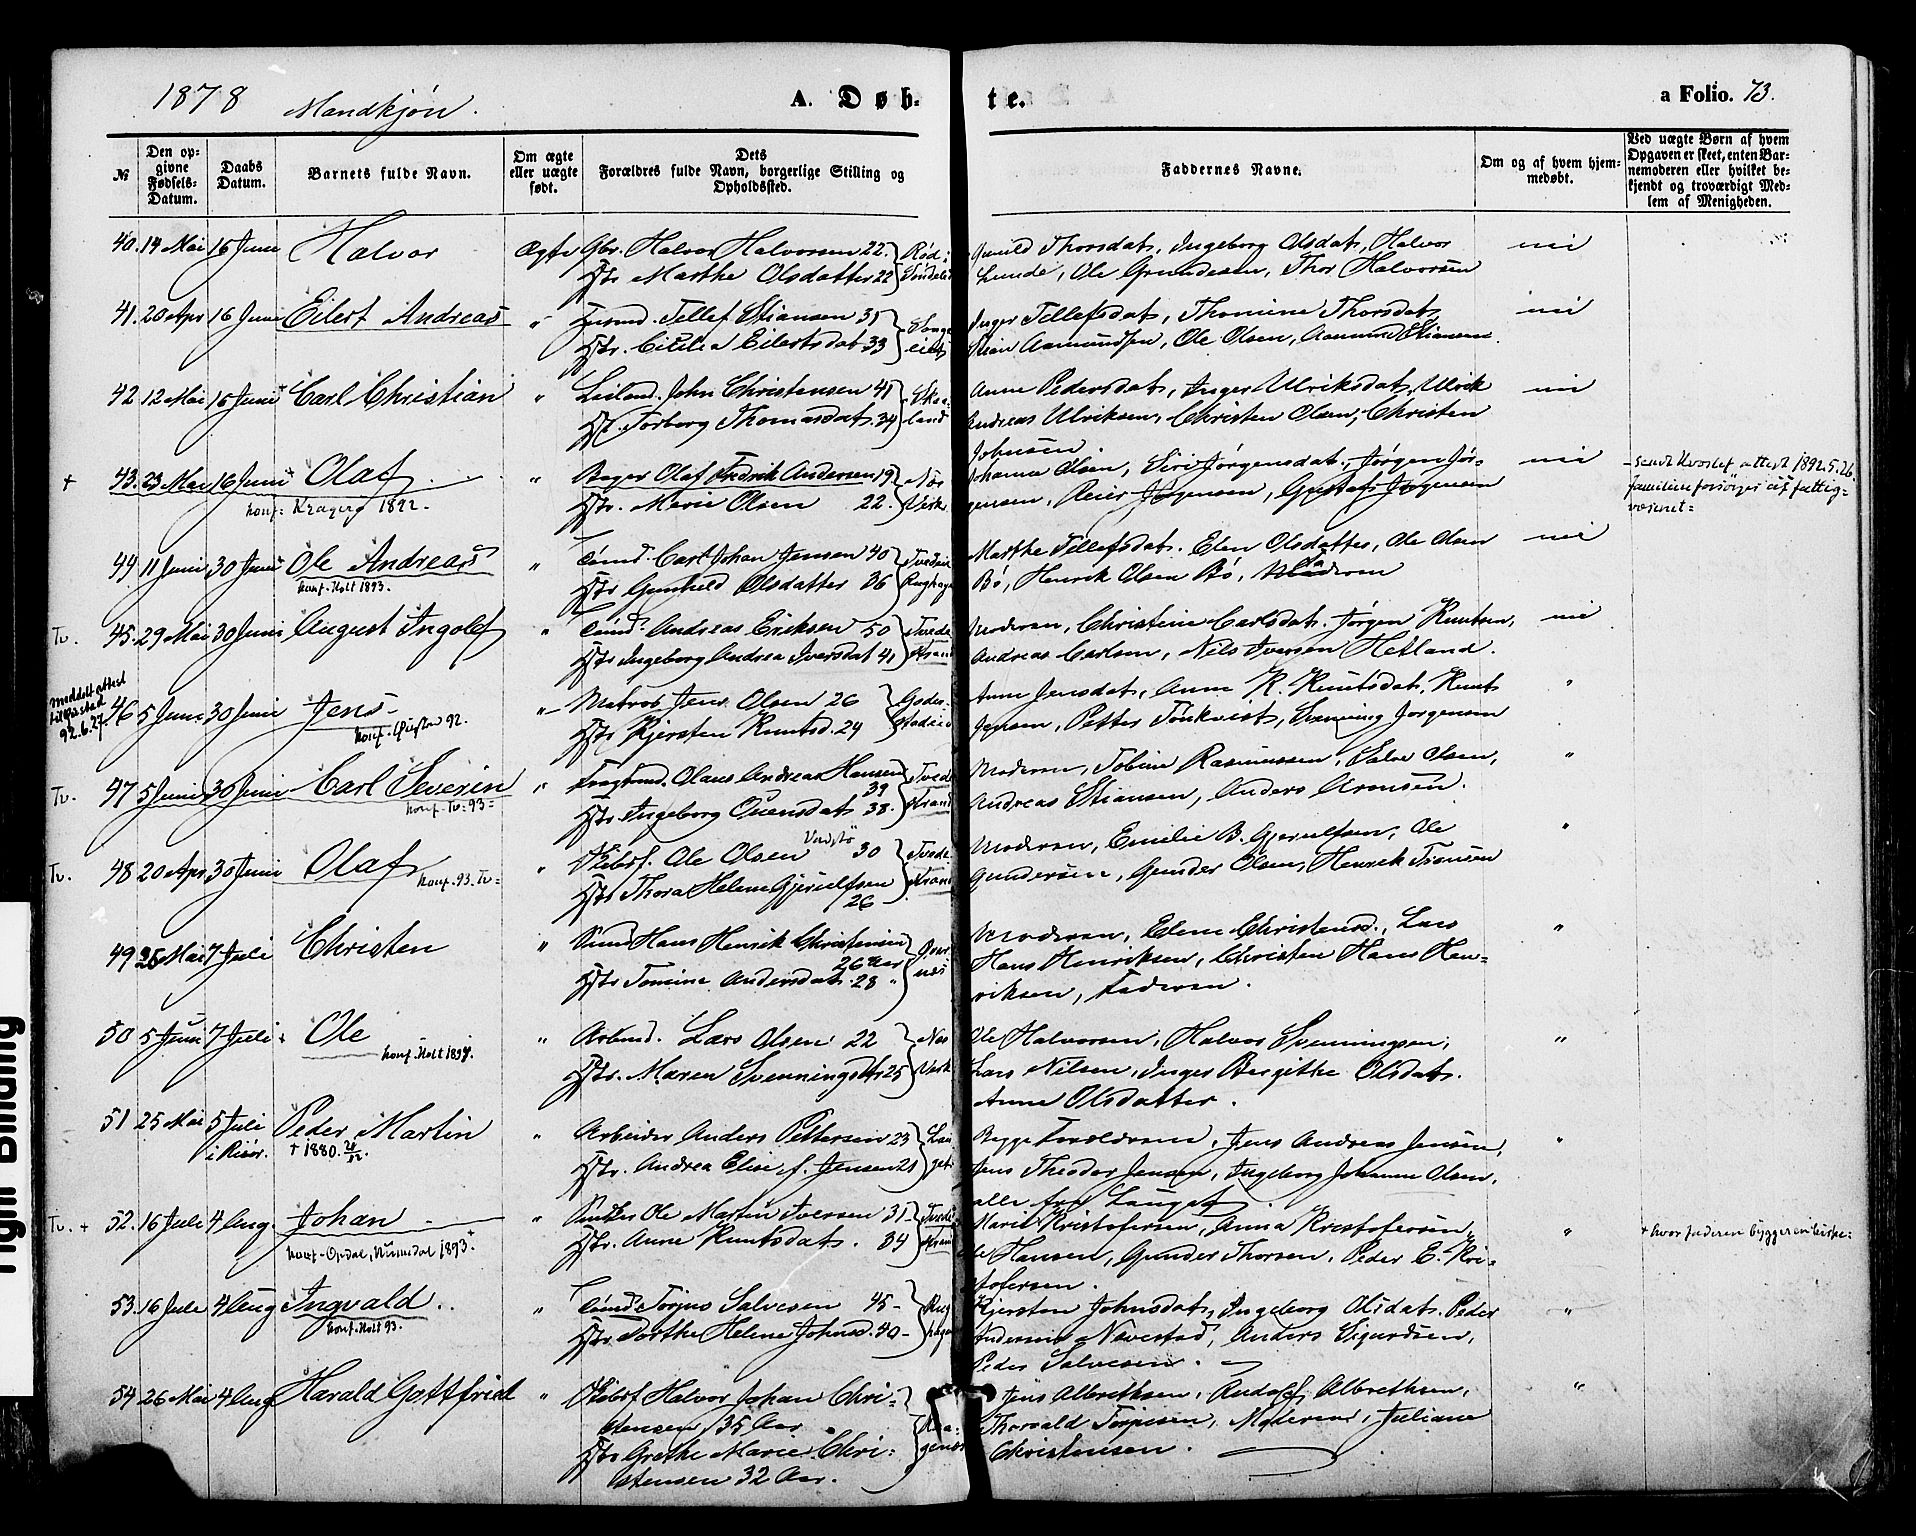 1878 Mandkjøn.
A. Døb-
te.
a Folio. 73.
№
Den op-
givne
Fødsels-
Datum.
Daabs
Datum.
Barnets fulde Navn.
Om ægte
eller uægte
født.
Dets
Forældres fulde Navn, borgerlige Stilling og
Opholdssted.
Faddernes Navne.
Om og af hvem hjem-
medøbt.
Ved uægte Børn af hvem
Opgaven er skeet, enten Bar-
nemoderen eller hvilket be-
kjendt og troværdigt Med-
lem af Menigheden.
40. 14 Mai 16 Juni Halvor Ægte Gbr. Halvor Halvorsen 22.
Hstr Marthe Olsdatter 22
Gunild Thorsdat, Ingeborg Olsdat, Halvor
Lunde, Ole Gundersen, Thor Halvorsen
nei
41. 20 Apr 16 Juni Eilert Andreas " Husmd. Tellef Stiansen 35
Hstr. Cicilia Eilertsdat 33
Inger Tellefsdat, Thomine Thorsdat,
Stian Aamundsen, Ole Olsen, Aanund Stiansen.
nei
42. 12 Mai 16 Juni + Carl Christian " Leiland. John Christensen 41
Hst. Torborg Thomasdat. 34 Skaa-
land
Anne Pedersdat, Inger Ulriksdat, Ulrik
Andreas Ulriksen, Christen Olsen, Christen
Johnsen
nei
+ 43. 23 Mai 16 Juni + Olaf " Bager Olaf Fredrik Andersen 19
konf. Kragerø 1892.
Hstr. Marie Olsen 22. Næs
Verk
Johanna Olsen, Siri Jørgensdat., Jørgen Jør-
gensen, Reier Jørgensen, Gustaf Jørgensen
nei
- sendt attest 1892.5.26.
familien forsørges af fattig-
væsenet =
44 11 Juni 30 Juni Ole Andreas " Tømd. Carl Johan Jensen 40
konf. Holt 1893.
Hstr Gunhild Olsdatter 36
Marthe Tellefsdat. Elen Olsdatter, Ole Olsen
Bø, Henrik Olsen Bø, Moderen
nei
Tv. 45. 29 Mai 30 Juni August Ingolf " Tømd. Andreas Eriksen 50
Hstr Ingeborg Andrea Iversdat 41 Tvede
strand
Moderen, Christine Carlsdat. Jørgen Knutsen,
Andreas Carlsen, Nils Iversen Hetland.
nei
meddelt attest
92.6.27.
46 5 Juni 30 Juni Jens - " Matros Jens Olsen 26
Hstr Kjersten Knutsd. 24
Anne Jensdat, Anne K. Knutsdat, Knut
Jensen, Petter Tönkvist, Svenning Jørgensen
"
Tv. 47 5 Juni 30 Juni Carl Severin " Olaus Andreas Hansen
konf. Tv. 93 =
39
Hstr Ingeborg Ouensdat 38. Tvede
strand
Moderen, Tobine Rasmussen, Salve Olsen,
Andreas Stiansen, Anders Aronsen.
"
Tv. 48 20 Apr 30 Juni Olaf " Skibsf. Ole Olsen 30
konf. 93. Tv =
Hstr Thora Helene Gjerulfsen
26
Tvede
strand
Moderen, Emilie B. Gjerulfsen, Ole
Gundersen, Gunder Olsen, Henrik Fransen
"
49 26 Mai 7 Juli Christen " Hans Henrik Christensen
26 Aar
Hstr Tomine Andersdat. 28 "
Moderen, Elene Christensd., Lars
Hans Henriksen, Christen Hans Hen-
riksen, Faderen.
"
50 5 Juni 7 Juli + Ole " Arbmd. Lars Olsen 22
konf. Holt 1894.
Hstr. Maren Svenningsdtr 25 Næs
Verk
Ole Halvorsen, Halvor Svenningsen,
Lars Nilsen, Inger Birgitte Olsdat.
Anne Olsdatter.
"
51 25 Mai 5 Juli Peder Martin " Arbeider Anders Pettersen 23
i Risør. + 1880.
Hstr. Andrea Elise, f. Jensen 21
Begge Forældrene, Jens Andreas Jensen,
Jens Theodor Jensen, Ingeborg Johanne Olsen,
alle fra Lauget
"
Tv. + 52. 16 Juli 4 Aug. Johan " Ole Martin Iversen 31
konf. Opdal, Numedal 1893 +
Hstr. Anne Knutsdat. 34 Tvede
strand
Marie Kristofersen, Anna Kristofersen,
Ole Hansen, Gunder Thorsen, Peder E. Kri-
stofersen.
"
+ hvor faderen bygger en kirke:
53. 16 Juli 4 Aug Ingvald " Tømd. Torjus Salvesen 45 -
konf. Holt 93.
Hstr. Dorthe Helene Johnsd. 40 -
Kjersten Johnsdat, Ingeborg Olsdat. Peder
Andersen Navestad, Anders Sigurdsen,
Peder Salvesen.
"
54 26 Mai 4 Aug Harald Gottfried " Skibsf. Halvor Johan Chri-
stensen 35 Aar
Hstr Grethe Marie Chri-
stensen 32 Aar.
Jens Albrethsen, Rudolf Albrethsen,
Thorvald Terjesen, Moderen, Juliane
Christensen.
"
Tight Binding